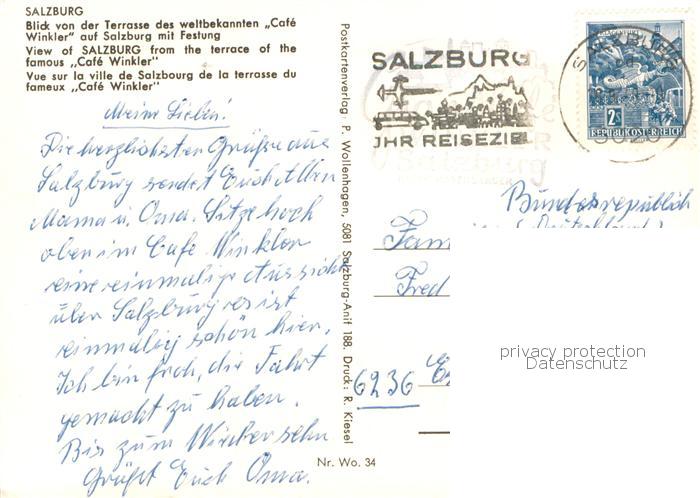 SALZBURG
Blick von der Terrasse des weltbekannten „Café
Winkler" auf Salzburg mit Festung
View of SALZBURG from the terrace of the
famous „Café Winkler"
Vue sur la ville de Salzbourg de la terrasse du
fameux „Café Winkler"
Meine Lieben!
Die herzlichsten Grüße aus
Salzburg sendet Euch Allen
Mama u. Oma. Sitze hoch
oben im Cafe Winkler
eine einmalige Aussicht
über Salzburg es ist
einmalig schön hier.
Ich bin froh, die Fahrt
gemacht zu haben.
Bis zum Wiedersehn
Grüßt Euch Oma.
Postkartenverlag P. Wollenhagen, 5081 Salzburg-Anif 188. Druck: R. Kiesel
Nr. Wo. 34
SALZBURG
JHR REISEZIEL
SALZBURG
5020
2S
REPUBLIK ÖSTERREICH
Bundesrepublik
(Deutschland)
Fam
Fred
6236
privacy protection
Datenschutz